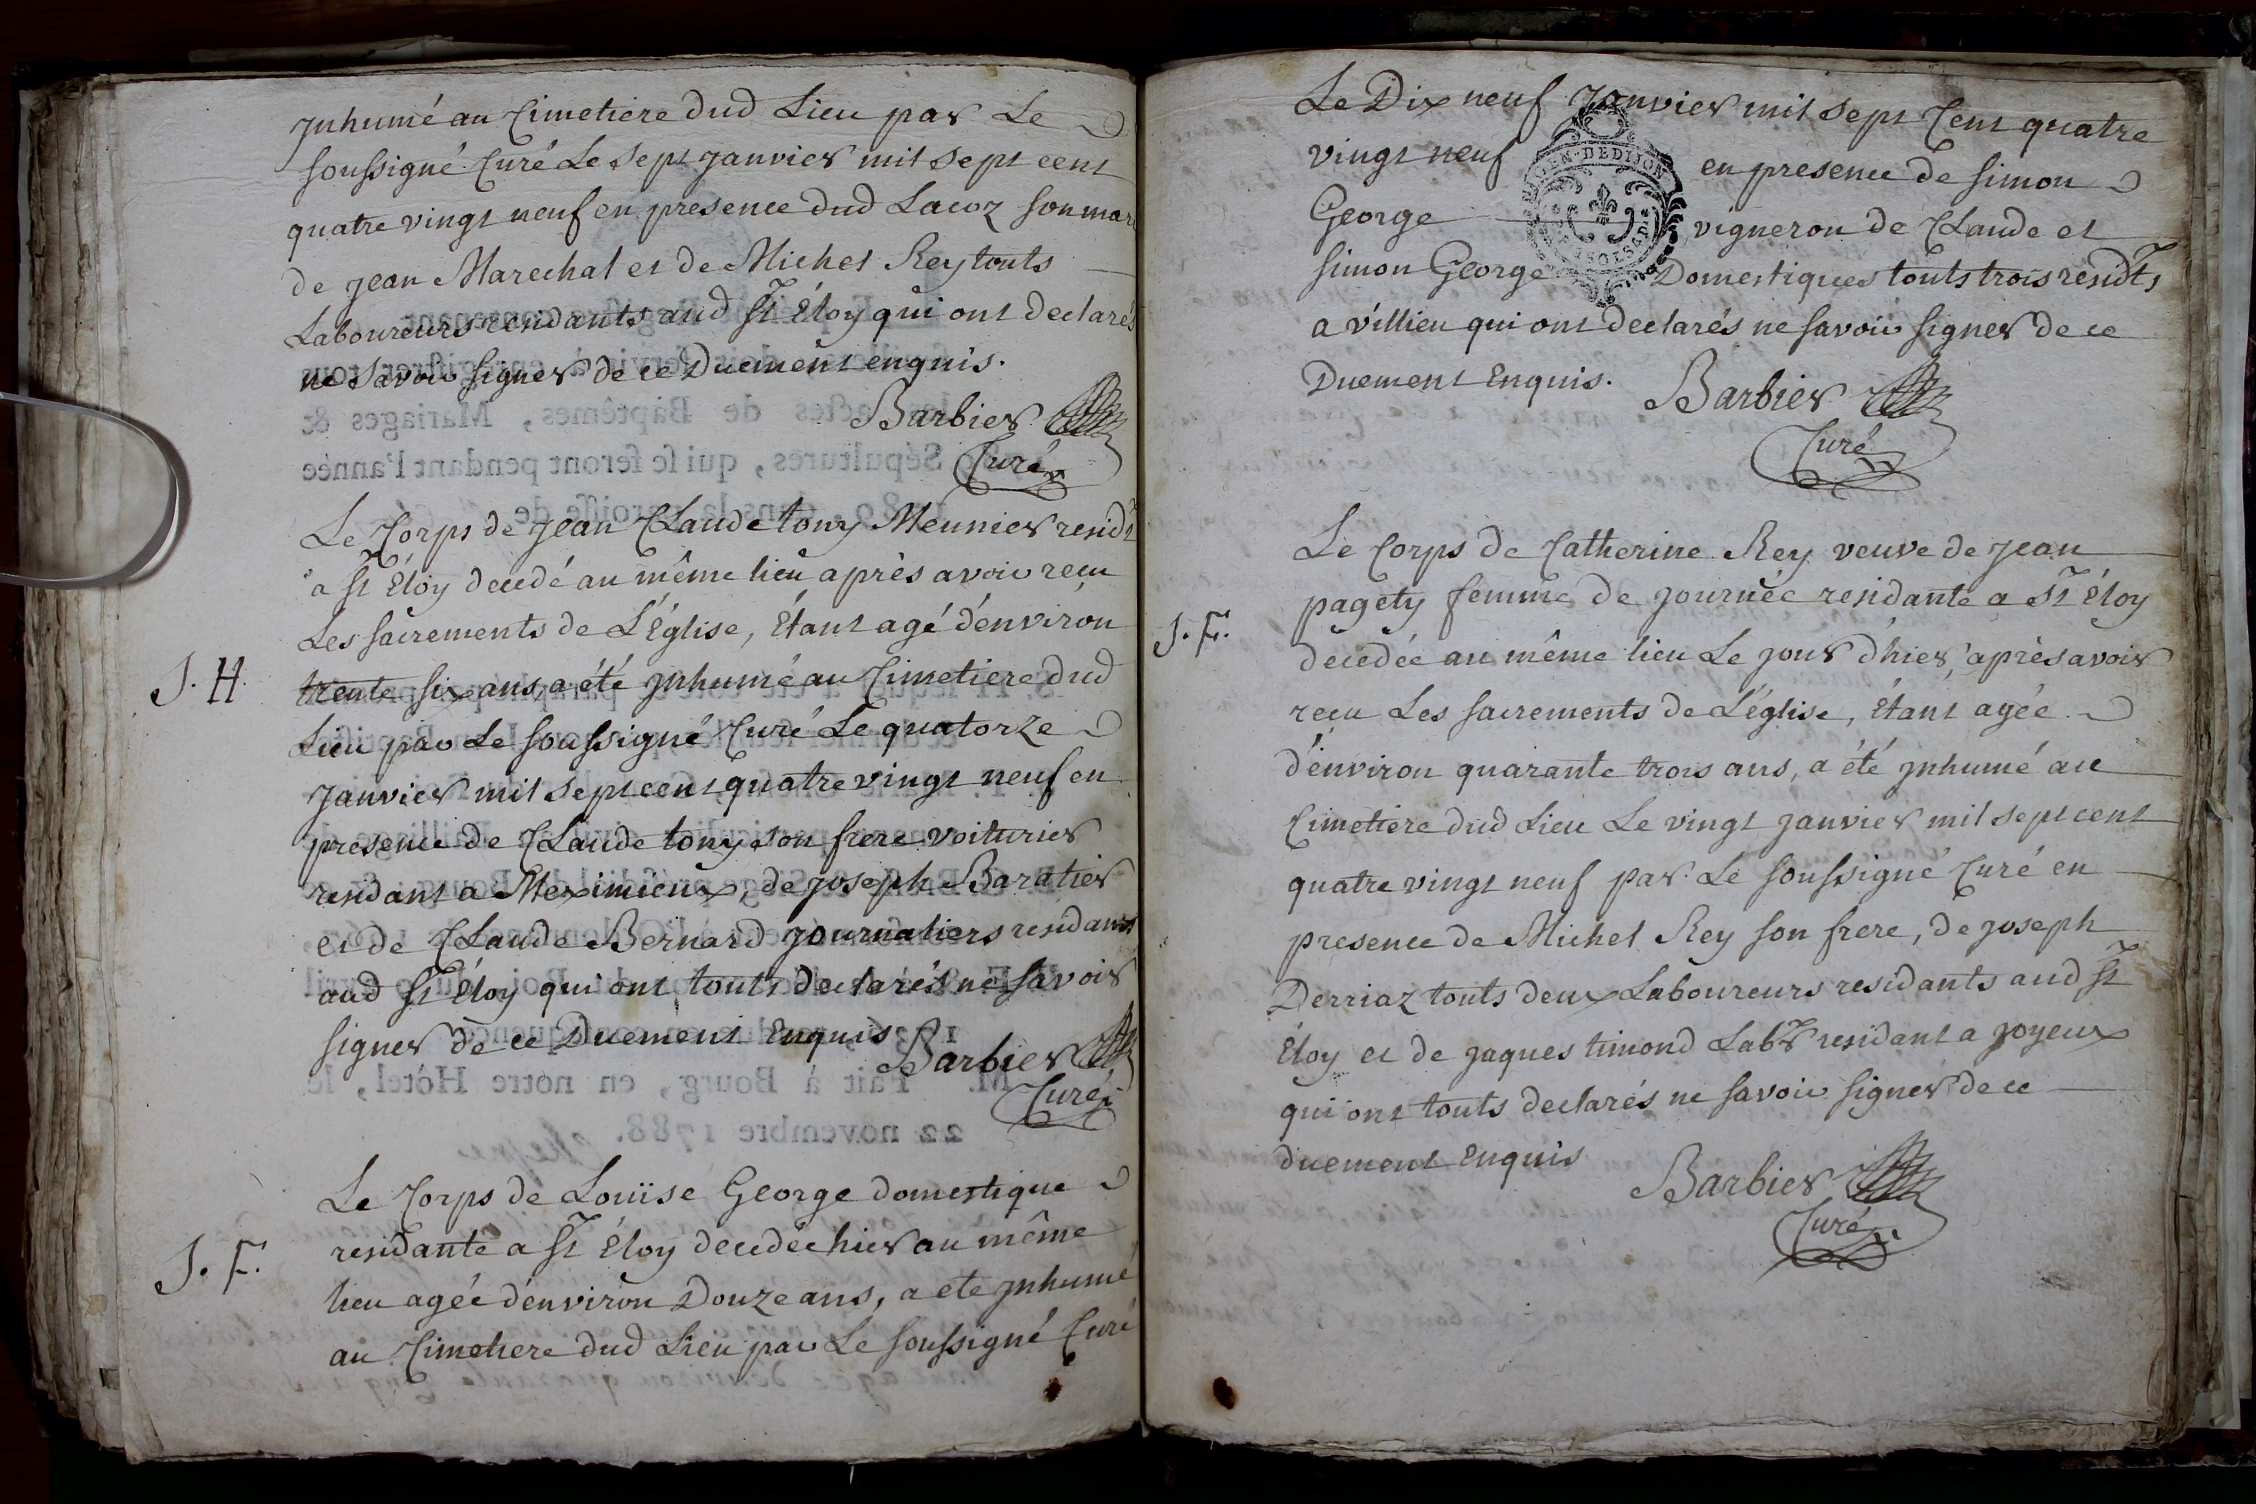 Jnhumé au Cimetiere dud Lieu par Le
soussigné Curé Le sept janvier mil sept cent
quatre vingt neuf en presence dud Lacoz son mari
de jean Marechal et de Michel Rey touts
Laboureurs residants aud St Éloy qui ont declarés
ne savoir signer de ce Duement enquis.
Barbier
Curé
Le Corps de jean CLaude tony Meunier residt
a St Éloy decedé au même lieu après avoir reçu
Les sacrements de L'Église, Étant agé d'environ
J. H.
trente six ans a été jnhumé au Cimetiere dud
Lieu par Le soussigné Curé Le quatorze
janvier mil sept cent quatre vingt neuf en
presence de CLaude tony son frere voiturier
residant a Meximieux, de joseph Baratier
et de CLaude Bernard journaliers residants
aud St Éloy qui ont touts declarés ne savoir
signer de ce Duement Enquis
Barbier
Curé
Le Corps de Louïse George domestique
J. F.
residante a St Éloy decedée hier au même
lieu agée d'environ Douze ans, a ete jnhumé
au Cimetiere dud Lieu par Le soussigné Curé
Le Dix neuf janvier mil sept Cent quatre
vingt neuf en presence de simon
George vigneron de CLaude et
simon George Domestiques touts trois residts
a villieu qui ont declarés ne savoir signer de ce
Duement Enquis.
DE DIJON
Barbier
Curé
Le Corps de Catherine Rey veuve de jean
pagety femme de journée residante a St Éloy
J. F.
decedée au même lieu Le jour d'hier, après avoir
reçu Les sacrements de L'église, Étant agée
d'environ quarante trois ans, a été jnhumé au
Cimetiere dud Lieu Le vingt janvier mil sept cent
quatre vingt neuf par Le soussigné Curé en
presence de Michel Rey son frere, de joseph
Derriaz touts deux Laboureurs residants aud St
Éloy et de jaques timond Labr residant a joyeux
qui ont touts declarés ne savoir signer de ce
duement Enquis
Barbier
Curé